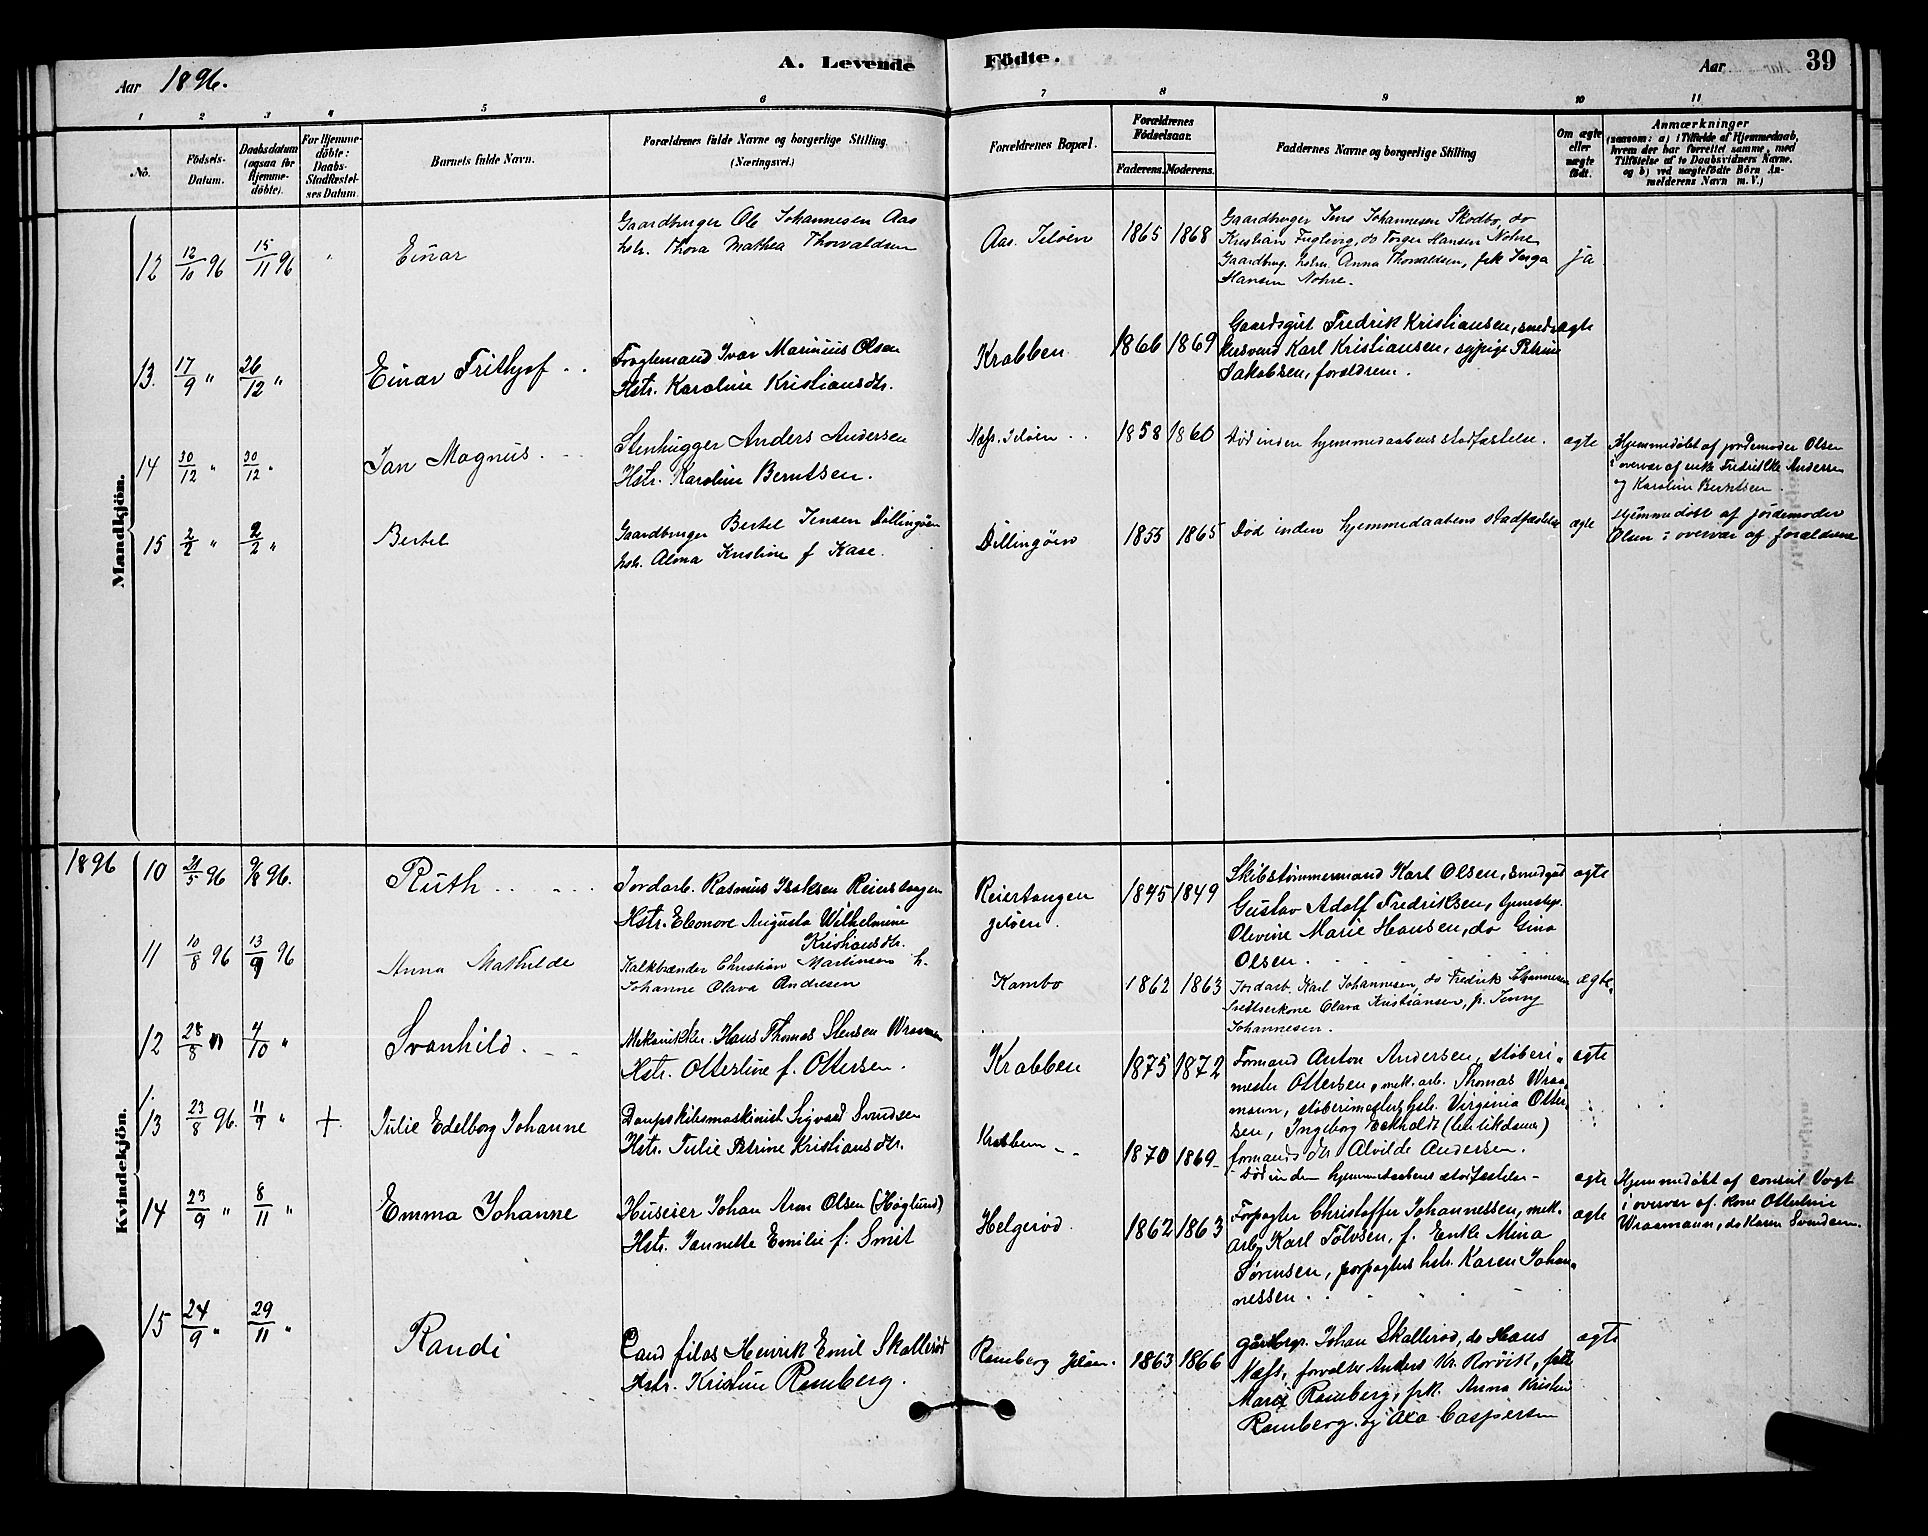 Aar 1896.
A. Levende Födte.
Aar
39
1 2 3 4 5 6 7 8 9 10 11
No.
Födsels-Datum.
Daabsdatum (ogsaa för Hjemme-döbte).
For Hjemme-döbte: Daabs-Stadfæstel-ses Datum.
Barnets fulde Navn.
Forældrenes fulde Navne og borgerlige Stilling (Næringsvei.)
Forældrenes Bopæl.
Forældrenes Födselsaar.
Faderens. Moderens.
Faddernes Navne og borgerlige Stilling
Om ægte eller uægte födt.
Anmærkninger
(saasom: a) i Tilfælde af Hjemmedaab,
hvem der har forrettet samme, med
Tilföielse af to Daabsvidners Navne.
og b) ved uægtefödte Börn An-
melderens Navn m. V.)
Mandkjön.
12 12/10 96 15/11 96 " Einar
Gaardbruger Ole Johannesen Aas
hstr. Thora Mathea Thorvaldsen
Aas. Jeløen 1865 1868
Gaardbruger Jens Johannesen Skodbo, do
Kristian Fuglevig, do Torger Hansen Nohre
Gaardbrug. hstru. Anna Thorvaldsen, frk Inga
Hansen Nohre.
ja
13. 17/9 " 26/12 " Einar Frithjof
Fragtemand Ivar Marinius Olsen
Hstr. Karoline Kristiansdtr.
Krabben 1866 1869
Gaardsgut Fredrik Kristiansen, smede
svend Karl Kristiansen, sypige Petrine
Jakobsen, forældrene.
ægte
14 30/12 " 30/12 " Jan Magnus.
Stenhugger Anders Andersen
Hstr. Karoline Berntsen.
Næs. Jeløen 1858 1860
Død inden hjemmedaabens stadfæstelse.
ægte
Hjemmedøbt af jordemoder Olsen
i overvær af enke Fredrikke Andersen
og Karoline Berntsen.
15 2/2 " 2/2 " Bertel
Gaardbruger Bertel Jensen Dillingøen
hstr. Alma Kristine f Kase.
Dillingøen 1855 1865
Død inden hjemmedaabens stadfæstelse
ægte
Hjemmedøbt af jordemoder
Olsen i overvær af forældrene
Kvindekjön.
1896
10 21/5 96 9/8 96. Ruth
Jordarb. Rasmus Isaksen Reierstangen
Hstr. Eleonore Augusta Wilhelmine
Kristiansdtr.
Reiertangen
jeløen.
1845 1849
Skibstømmermand Karl Olsen, smedgut
Gustav Adolf Fredriksen, tjenestep.
Olevine Marie Hansen, do Gina
Olsen.
ægte
11 10/8 96 13/9 96 Anna Mathilde
Kalkbrænder Christian Martinsen h.
Johanne Olava Andresen
Kambo 1862 1863
Jordarb. Karl Johannesen, do Fredrik Johannesen
Olava Kristiansen, p. Jenny
Johannesen.
ægte.
12 28/8 " 4/10 " Svanhild.
Mekanikker. Hans Thomas Stensen Wraamann
Hstr. Otterline f. Ottersen.
Krabben 1875 1872
Formand Anton Andersen, støberi-
mester Ottersen, mek. arb. Thomas Wraa-
mann, støberimesters hstr. Virginia Otter-
sen, Ingeborg Eckholdt
formands dtr Alvilde Andersen.
ægte
13 23/8 96. 11/9 " + Julie Edelborg Johanne
Dampskibsmaskinist Sigvard Svendsen
Hstr. Julie Petrine Kristiansdtr.
Krabben 1870 1869
Død inden hjemmedaabens stadfæstelse
ægte
Hjemmedøbt af consul Vogt
i overvær af kone Otterline
Wraamann, do Karen Svendsen.
14 23/9 " 8/11 " Emma Johanne
Huseier Johan Aron Olsen (Høglund)
Hstr. Jannette Emilie f. Smit
Helgerød. 1862 1863
Forpagter Christoffer Johannessen, mek.
arb. Karl Tolvsen, f. Enke Mina
Sørensen, forpagters hstr. Karen Johan-
nessen.
ægte
15 24/9 " 29/11 " Randi
Cand filos Henrik Emil Skallerød
Hstr. Kristine Ramberg.
Ramberg Jeløen. 1863 1866
gårdbrgr. Johan Skallerød, do Hans
Næss, forvalter Anders Kr. Rørvik, frk
Marie Ramberg, frk. Anna Kristine
Ramberg. og Aca Caspersen
ægte